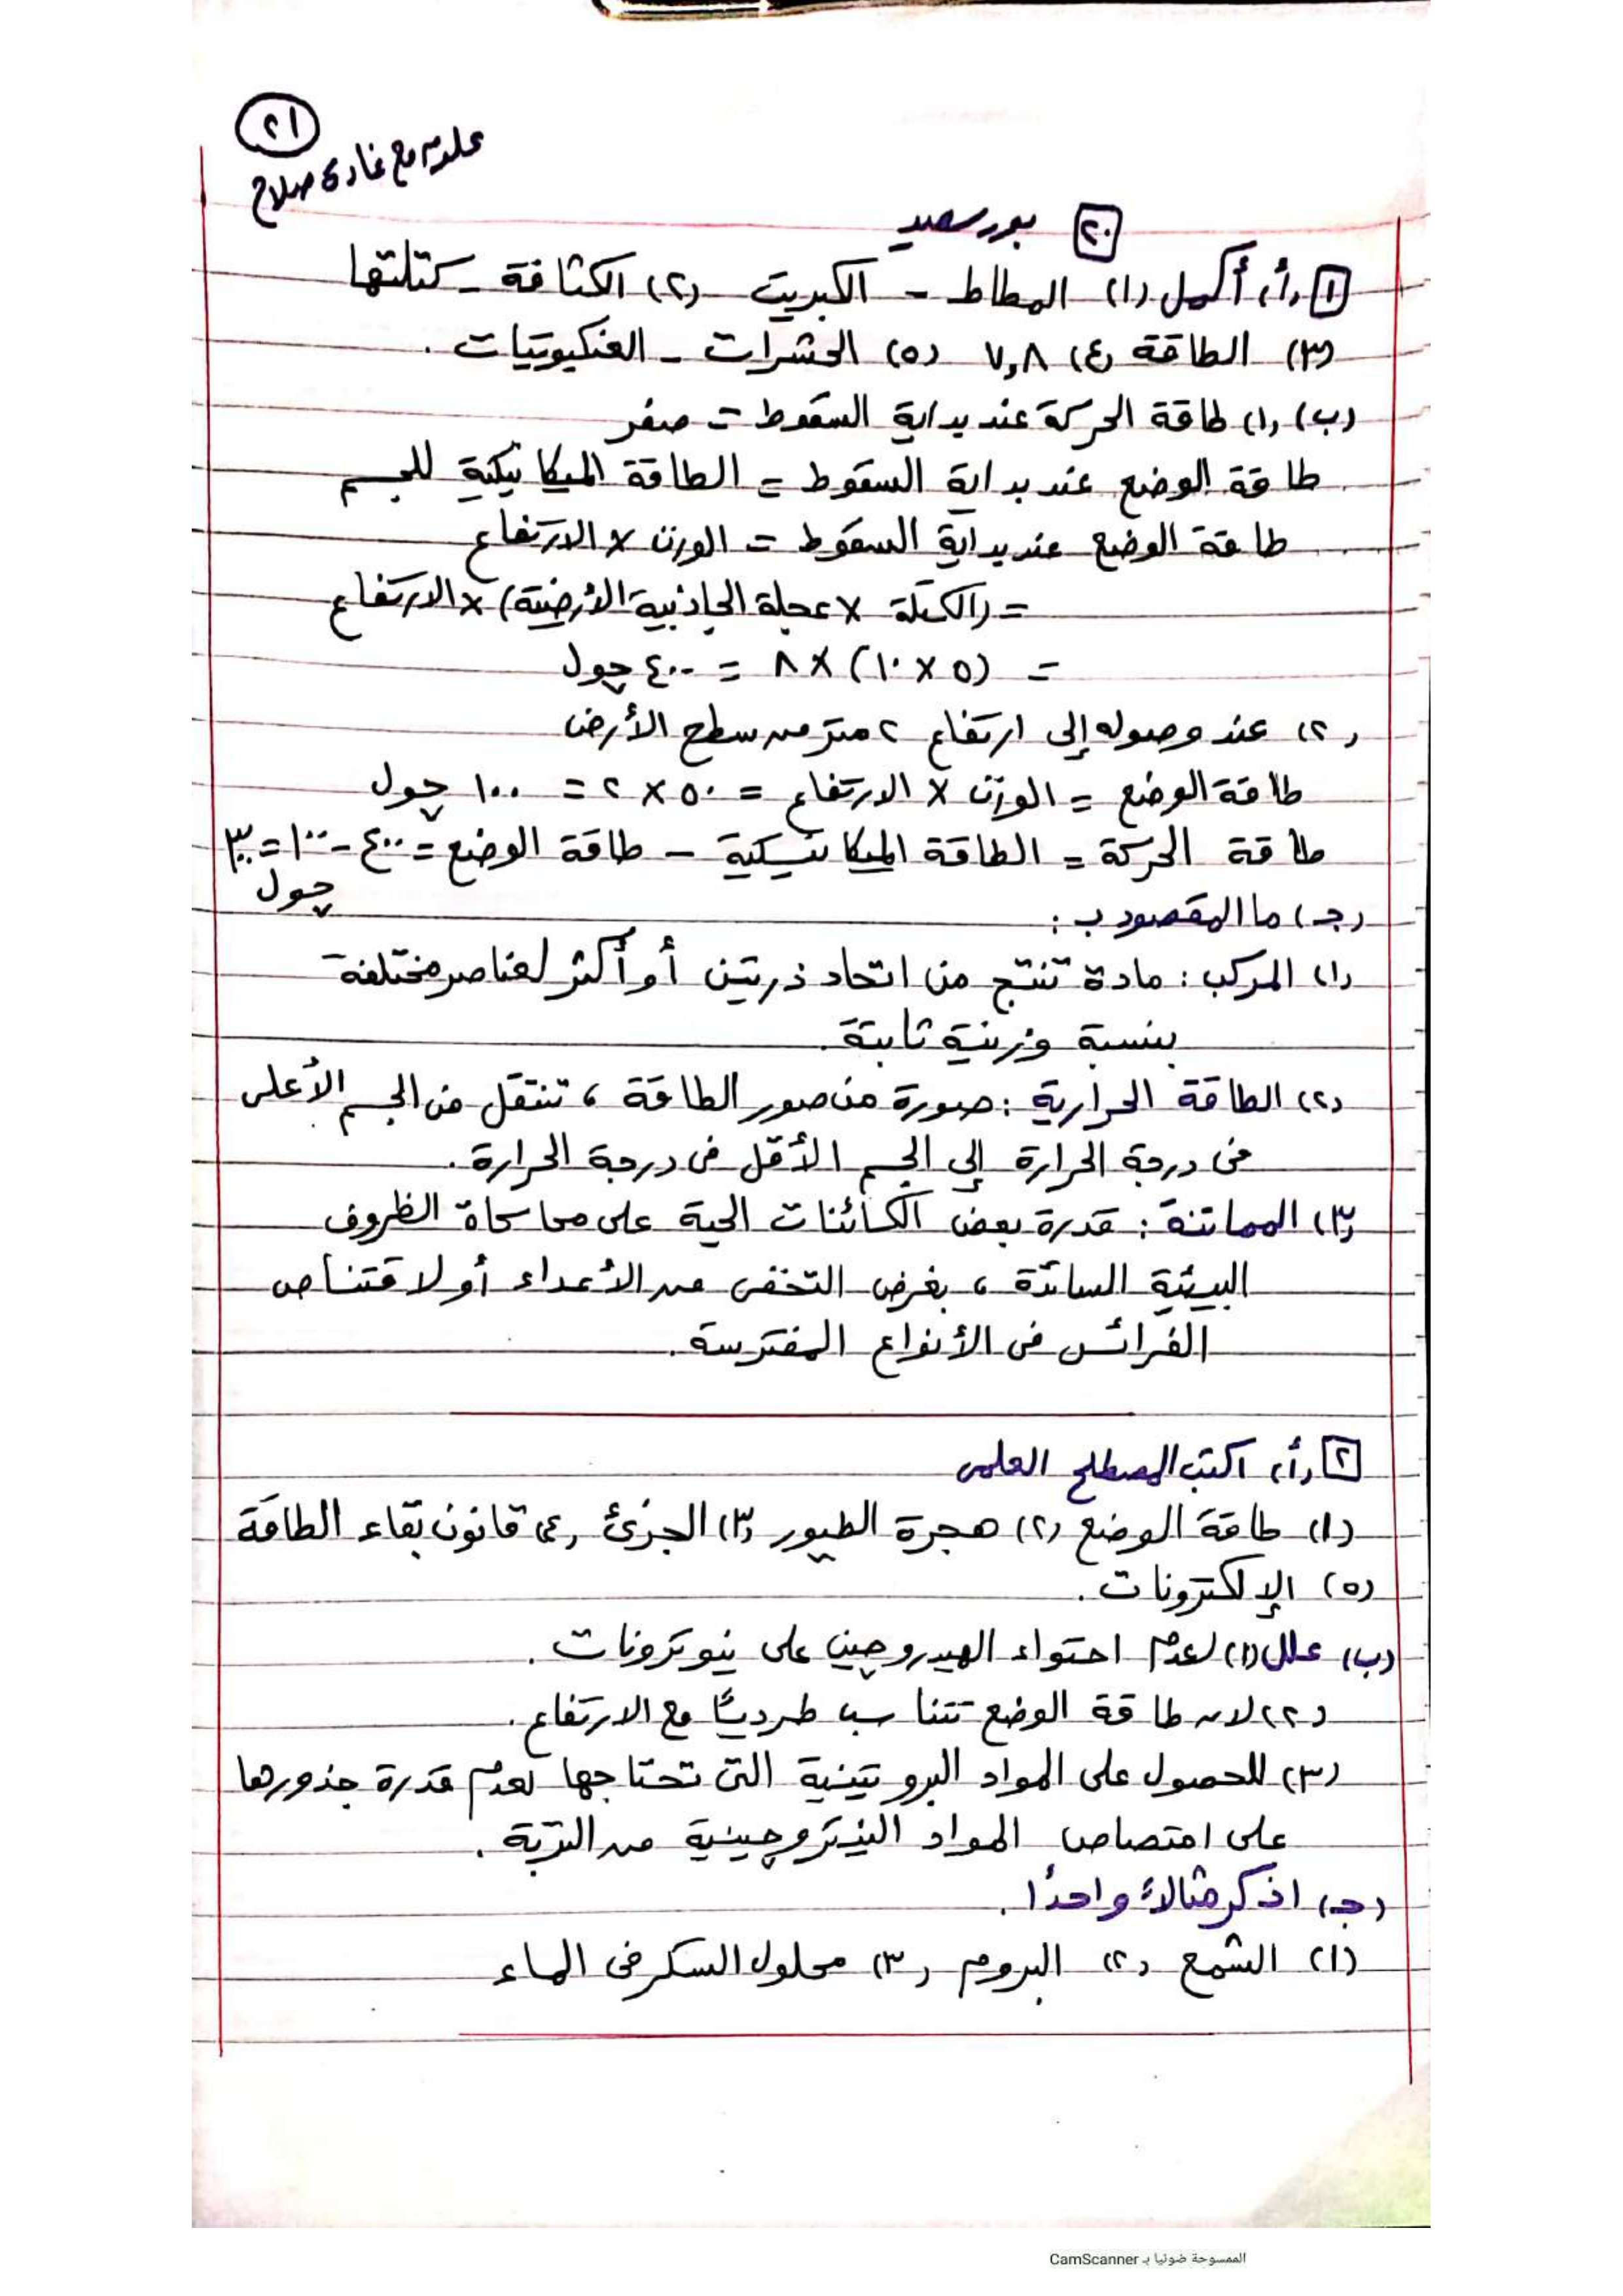 ٢١
علوم مع غادة صلاح
٢٠ بورسعيد
١ (أ) أكمل (١) المطاط - الكبريت (٢) الكثافة - كتلتها
(٣) الطاقة (٤) ٧,٨ (٥) الحشرات - العنكبوتيات.
(ب) (١) طاقة الحركة عند بداية السقوط = صفر
طاقة الوضع عند بداية السقوط = الطاقة الميكانيكية للجسم
طاقة الوضع عند بداية السقوط = الوزن × الارتفاع
= (الكتلة × عجلة الجاذبية الأرضية) × الارتفاع
= (٥ × ١٠) × ٨ = ٤٠٠ چول
(٢) عند وصوله إلى ارتفاع ٢ متر من سطح الأرض
طاقة الوضع = الوزن × الارتفاع = ٥٠ × ٢ = ١٠٠ چول
طاقة الحركة = الطاقة الميكانيكية - طاقة الوضع = ٤٠٠ - ١٠٠ = ٣٠٠
چول
(جـ) ما المقصود بـ :
(١) المركب : مادة تنتج من اتحاد ذرتين أو أكثر لعناصر مختلفة
بنسبة وزنية ثابتة.
(٢) الطاقة الحرارية : صورة من صور الطاقة ، تنتقل من الجسم الأعلى
فى درجة الحرارة إلى الجسم الأقل فى درجة الحرارة.
(٣) المماتنة : قدرة بعض الكائنات الحية على محاكاة الظروف
البيئية السائدة ، بغرض التخفى من الأعداء أو لاقتناص
الفرائس فى الأنواع المفترسة.
٢ (أ) اكتب المصطلح العلمى
(١) طاقة الوضع (٢) هجرة الطيور (٣) الجزئ (٤) قانون بقاء الطاقة
(٥) الإلكترونات.
(ب) علل (١) لعدم احتواء الهيدروچين على نيوترونات.
(٢) لان طاقة الوضع تتناسب طرديًا مع الارتفاع.
(٣) للحصول على المواد البروتينية التى تحتاجها لعدم قدرة جذورها
على امتصاص المواد النيتروچينية من التربة.
(جـ) اذكر مثالاً واحدًا.
(١) الشمع (٢) البروم (٣) محلول السكر فى الماء
الممسوحة ضوئيا بـ CamScanner